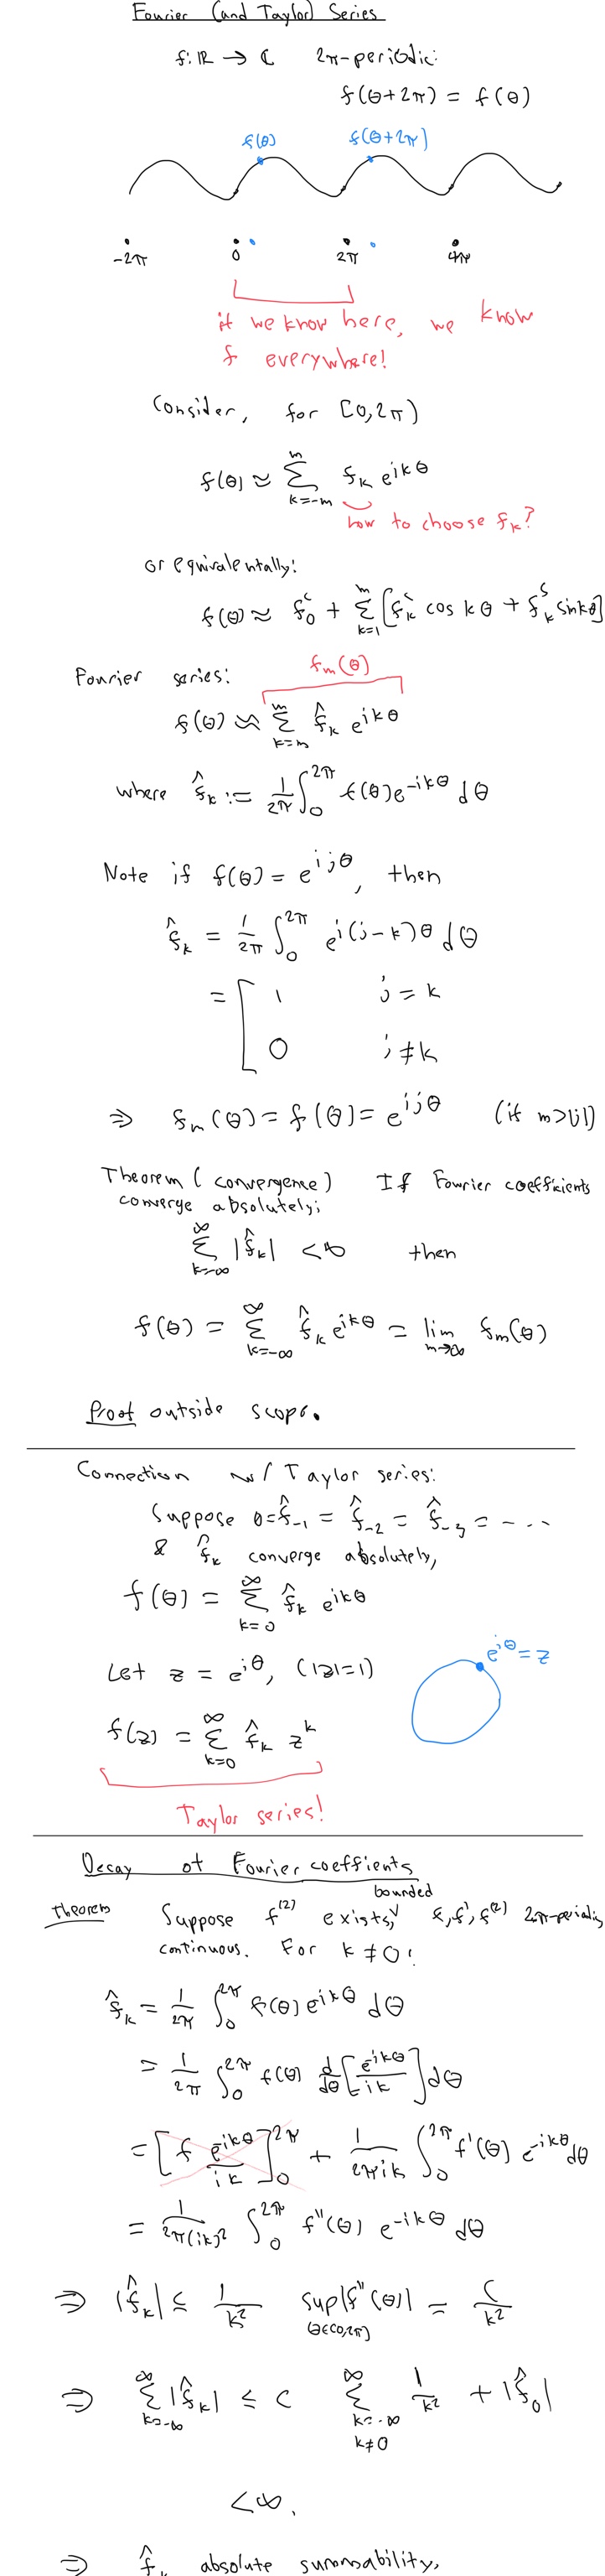 Fourier (and Taylor) Series
f: ℝ → ℂ 2π-periodic:
f(θ+2π) = f(θ)
f(θ) f(θ+2π)
-2π 0 2π 4π
if we know here, we know
f everywhere!
Consider, for [0,2π)
f(θ) ≈ ∑_{k=-m}^{m} f_k e^{ikθ}
how to choose f_k?
or equivalentally:
f(θ) ≈ f_0^c + ∑_{k=1}^{m} [f_k^c cos kθ + f_k^s sin kθ]
Fourier series: f_m(θ)
f(θ) ≈ ∑_{k=m}^{m} f̂_k e^{ikθ}
where f̂_k := 1/2π ∫_0^{2π} f(θ) e^{-ikθ} dθ
Note if f(θ) = e^{ijθ}, then
f̂_k = 1/2π ∫_0^{2π} e^{i(j-k)θ} dθ
= [ 1 j = k
0 j ≠ k
⇒ f_m(θ) = f(θ) = e^{ijθ} (if m>|j|)
Theorem (convergence) If Fourier coefficients
converge absolutely:
∑_{k=-∞}^{∞} |f̂_k| < ∞ then
f(θ) = ∑_{k=-∞}^{∞} f̂_k e^{ikθ} = lim_{m→∞} f_m(θ)
Proof outside scope.
Connection w/ Taylor series:
Suppose 0 = f̂_{-1} = f̂_{-2} = f̂_{-3} = ...
& f̂_k converge absolutely,
f(θ) = ∑_{k=0}^{∞} f̂_k e^{ikθ}
Let z = e^{iθ}, (|z|=1) e^{iθ} = z
f(z) = ∑_{k=0}^{∞} f̂_k z^k
Taylor series!
Decay of Fourier coeffients
bounded
theorem Suppose f^{(2)} exists, f, f', f^{(2)} 2π-periodic,
continuous. For k ≠ 0:
f̂_k = 1/2π ∫_0^{2π} f(θ) e^{ikθ} dθ
= 1/2π ∫_0^{2π} f(θ) d/dθ [e^{-ikθ}/ik] dθ
= [f e^{-ikθ}/ik]_0^{2π} + 1/2πik ∫_0^{2π} f'(θ) e^{-ikθ} dθ
= 1/2π(ik)^2 ∫_0^{2π} f''(θ) e^{-ikθ} dθ
⇒ |f̂_k| ≤ 1/k^2 sup_{θ∈[0,2π]} |f''(θ)| = C/k^2
⇒ ∑_{k=-∞}^{∞} |f̂_k| ≤ C ∑_{k=-∞, k≠0}^{∞} 1/k^2 + |f̂_0|
< ∞.
⇒ f̂_k absolute summability.